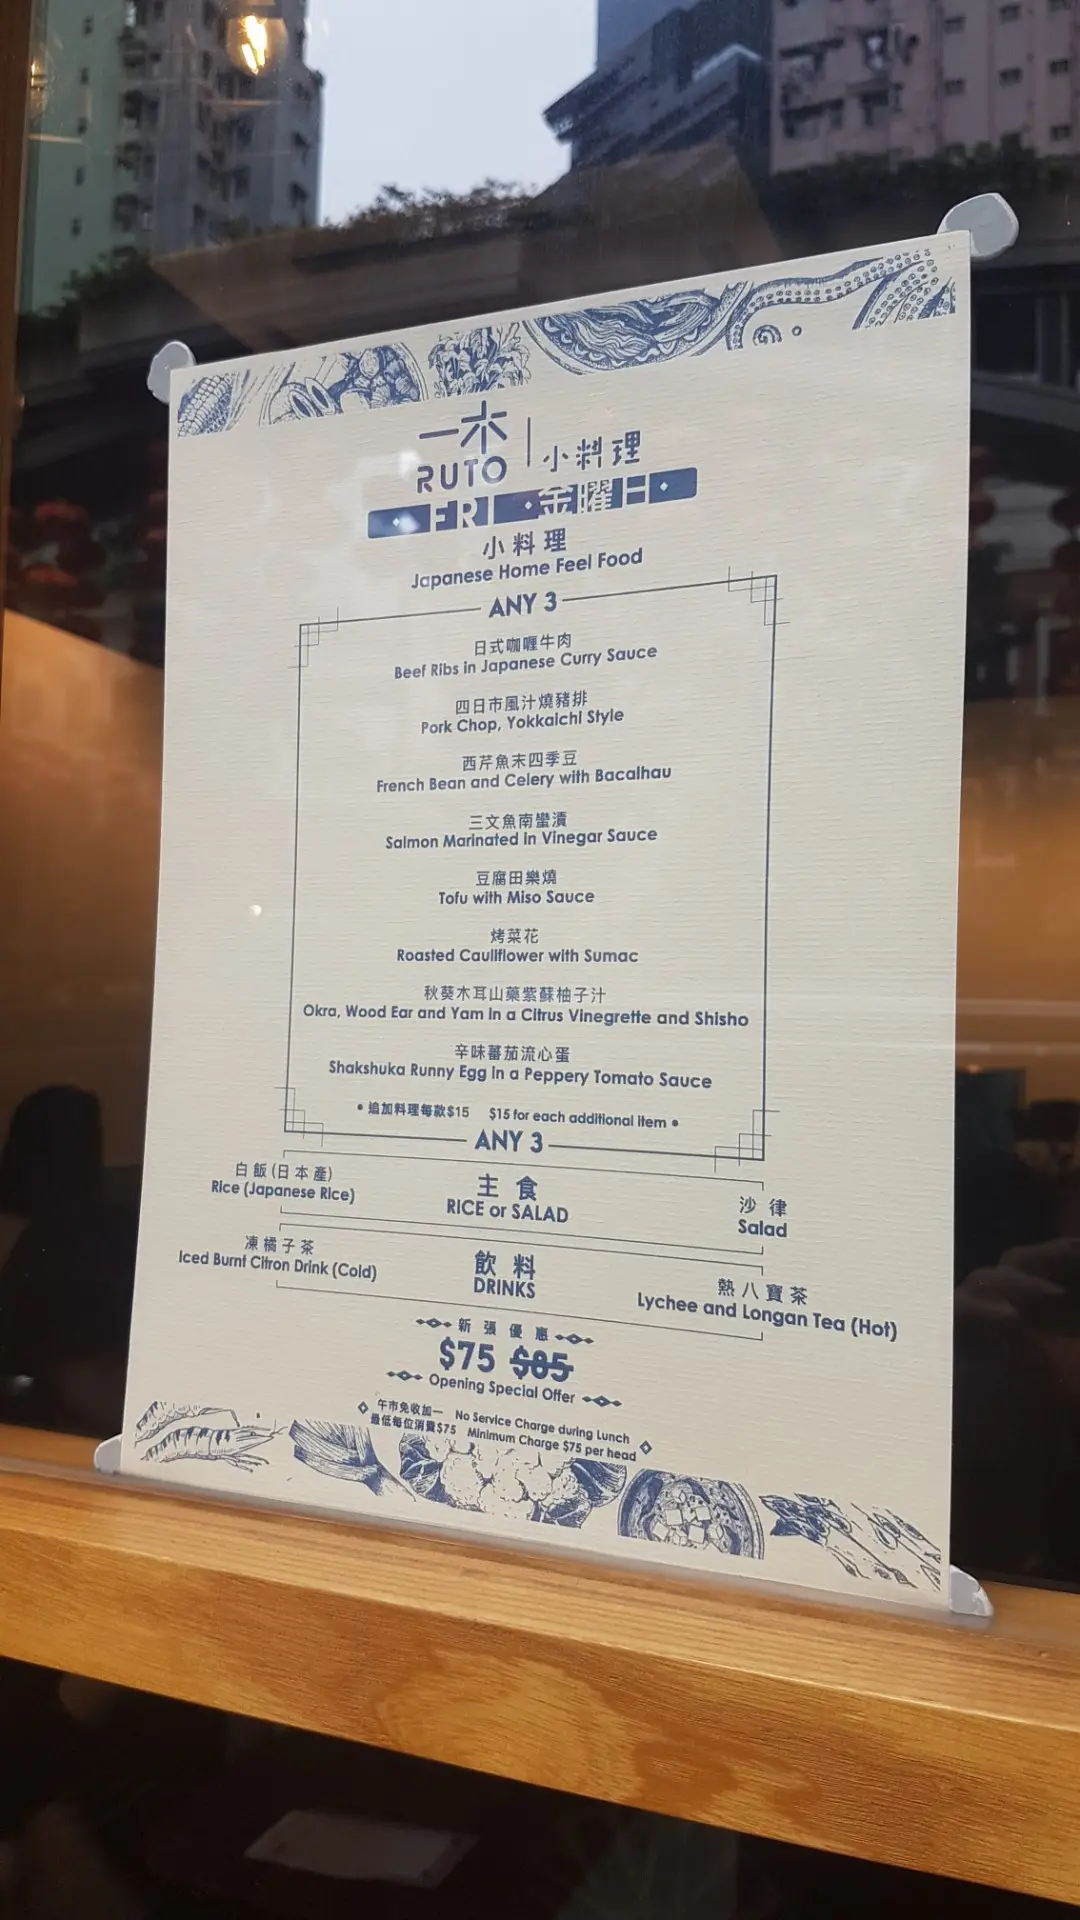 一木 | 小料理
RUTO
FRI 金曜日
小料理
Japanese Home Feel Food
ANY 3
日式咖喱牛肉
Beef Ribs in Japanese Curry Sauce
四日市風汁燒豬排
Pork Chop, Yokkaichi Style
西芹魚末四季豆
French Bean and Celery with Bacalhau
三文魚南蠻漬
Salmon Marinated in Vinegar Sauce
豆腐田樂燒
Tofu with Miso Sauce
烤菜花
Roasted Cauliflower with Sumac
秋葵木耳山藥紫蘇柚子汁
Okra, Wood Ear and Yam in a Citrus Vinegrette and Shisho
辛味蕃茄流心蛋
Shakshuka Runny Egg in a Peppery Tomato Sauce
• 追加料理每款$15 $15 for each additional item •
ANY 3
白飯(日本產)
Rice (Japanese Rice)
主食
RICE or SALAD
沙律
Salad
凍橘子茶
Iced Burnt Citron Drink (Cold)
飲料
DRINKS
熱八寶茶
Lychee and Longan Tea (Hot)
新張優惠
$75 $85
Opening Special Offer
午市免收加一 No Service Charge during Lunch
最低每位消費$75 Minimum Charge $75 per head